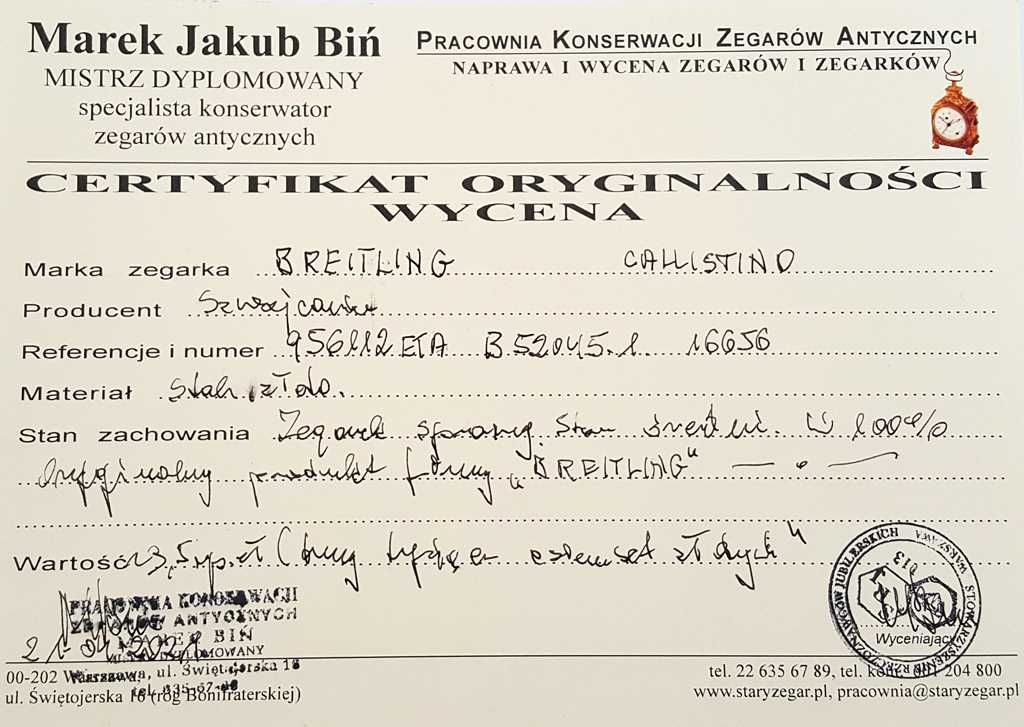 Marek Jakub Biń
MISTRZ DYPLOMOWANY
specjalista konserwator
zegarów antycznych
PRACOWNIA KONSERWACJI ZEGARÓW ANTYCZNYCH
NAPRAWA I WYCENA ZEGARÓW I ZEGARKÓW
CERTYFIKAT ORYGINALNOŚCI
WYCENA
Marka zegarka BREITLING CALLISTINO
Producent Szwajcarski
Referencje i numer 956112 ETA B52045.1. 16656
Materiał Stal, złoto.
Stan zachowania Zegarek sprawny. Stan średni. W 100%
Oryginalny produkt firmy „BREITLING"
Wartość zł ( tysiące osiemset złotych"
PRACOWNIA KONSERWACJI
ZEGARÓW ANTYCZNYCH
MAREK BIŃ
MISTRZ DYPLOMOWANY
Warszawa, ul. Świętojerska 16
STOWARZYSZENIE RZECZOZNAWCÓW JUBILERSKICH WARSZAWA
013
Wyceniający
00-202 Warszawa,
ul. Świętojerska 16 (róg Bonifraterskiej)
tel. 22 635 67 89, tel. kom. 601 204 800
www.staryzegar.pl, pracownia@staryzegar.pl